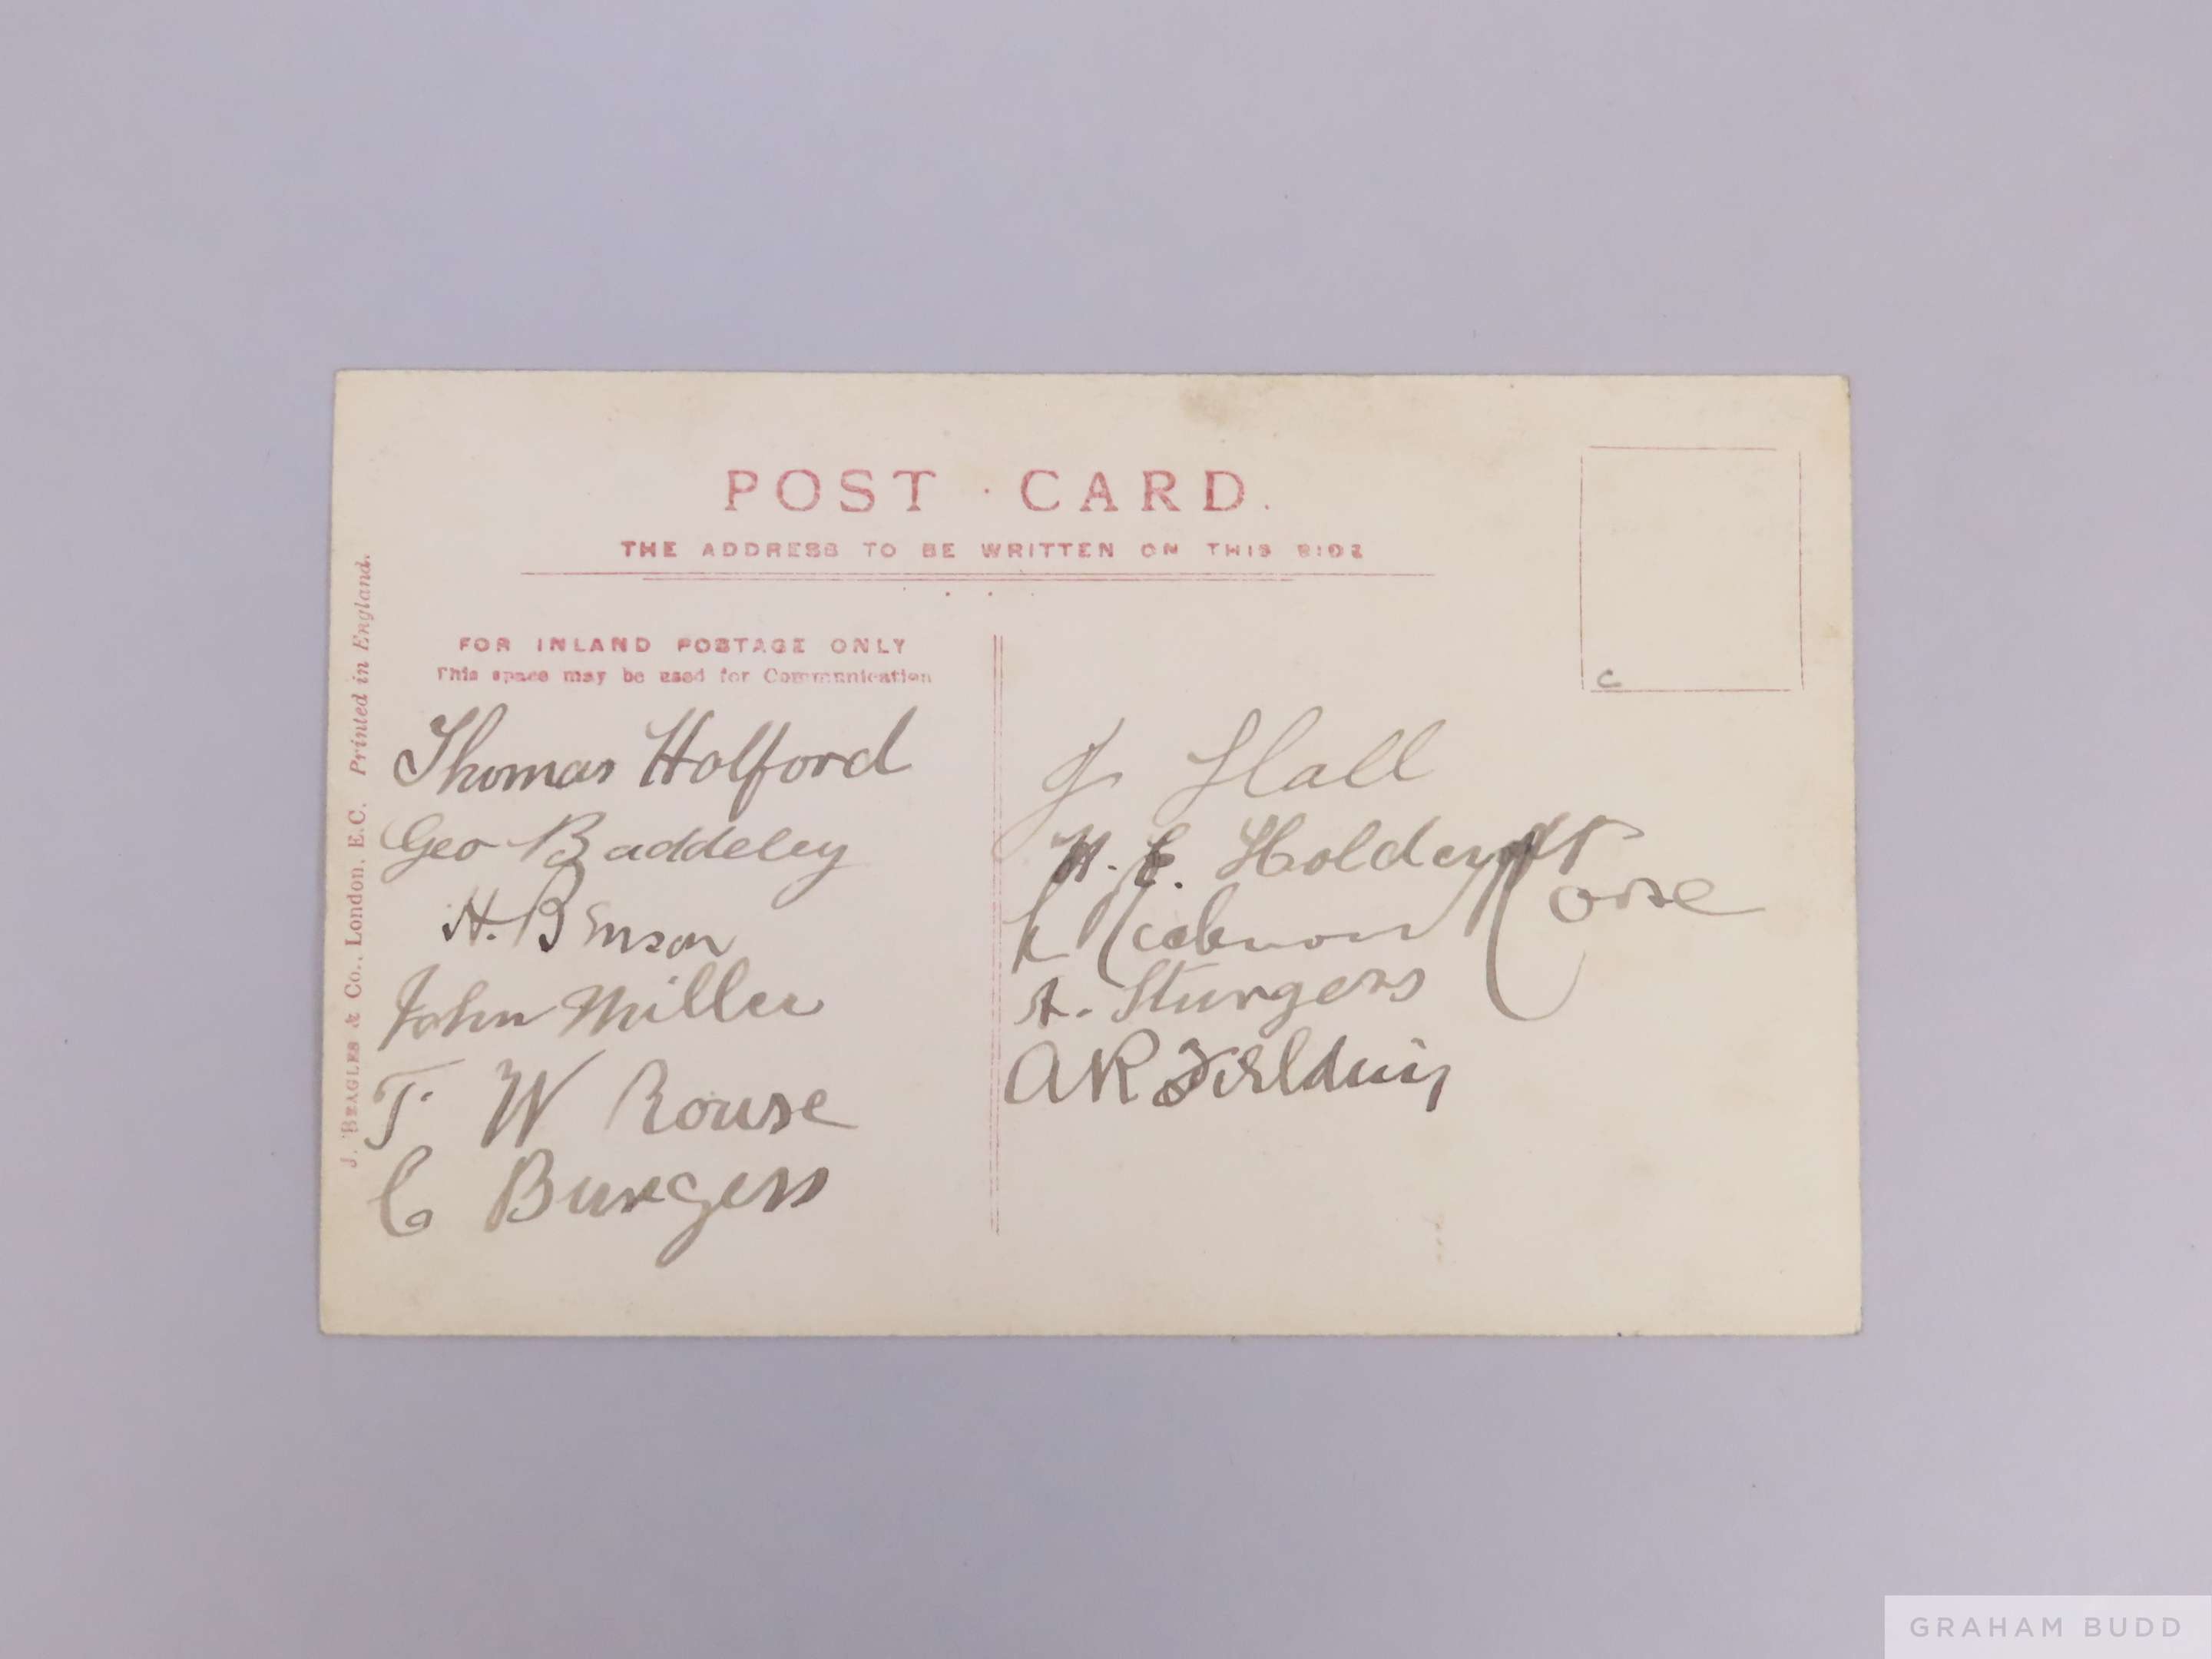 POST CARD.
THE ADDRESS TO BE WRITTEN ON THIS SIDE
FOR INLAND POSTAGE ONLY
This space may be used for Communication
J. BEAGLES & Co., London, E.C. Printed in England.
Thomas Holford
Geo Baddeley
H. Benson
John Miller
T. W Rouse
C Burgess
J Hall
H. E. Holdcroft
A. Sturgess
A R Fielding
C
GRAHAM BUDD